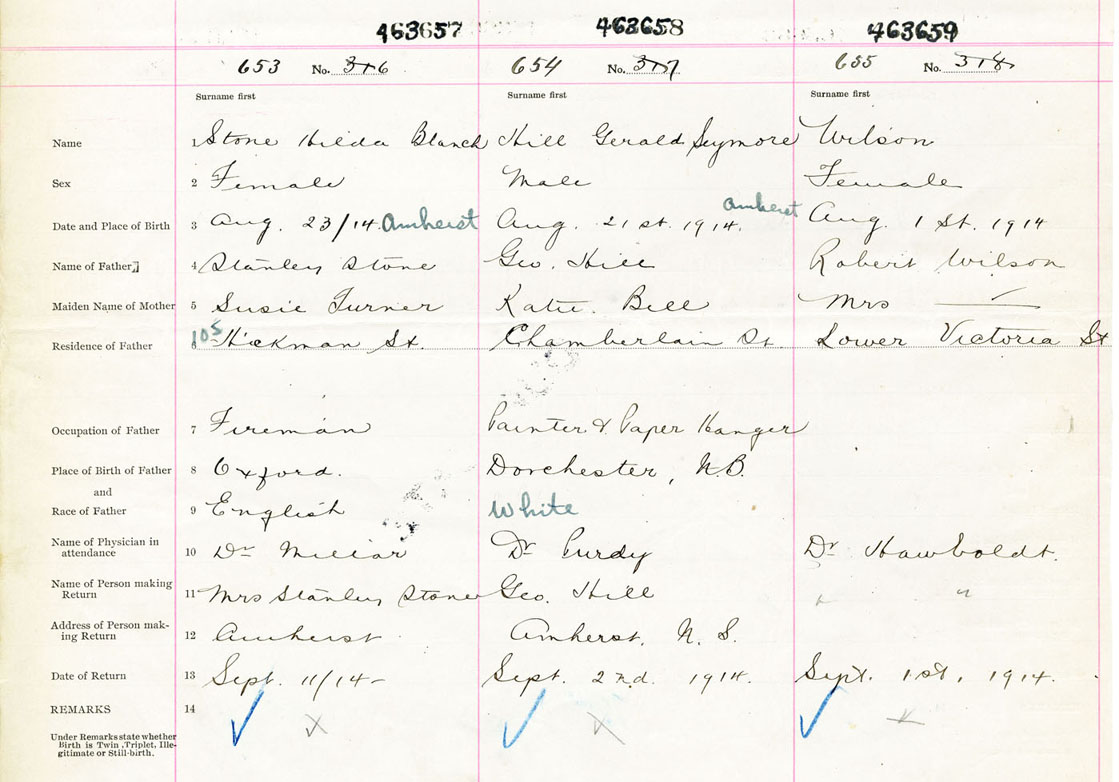 463657 463658 463659
653 No. 316 654 No. 317 655 No. 318
Surname first Surname first Surname first
Name 1 Stone Hilda Blanch Hill Gerald Seymore Wilson
Sex 2 Female Male Female
Date and Place of Birth 3 Aug. 23/14. Amherst Aug. 21st. 1914. Amherst Aug. 1st. 1914
Name of Father 4 Stanley Stone Geo. Hill Robert Wilson
Maiden Name of Mother 5 Susie Turner Katie. Bell Mrs
Residence of Father 6 105 Hickman St. Chamberlain St. Lower Victoria St
Occupation of Father 7 Fireman Painter & Paper Hanger
Place of Birth of Father 8 Oxford. Dorchester, N.B.
and
Race of Father 9 English White
Name of Physician in
attendance 10 Dr Millar Dr Purdy Dr Hawboldt.
Name of Person making
Return 11 Mrs Stanley Stone Geo. Hill " "
Address of Person mak-
ing Return 12 Amherst. Amherst, N. S.
Date of Return 13 Sept. 11/14- Sept. 2nd. 1914. Sept. 1st, 1914.
REMARKS 14
Under Remarks state whether
Birth is Twin, Triplet, Ille-
gitimate or Still-birth.